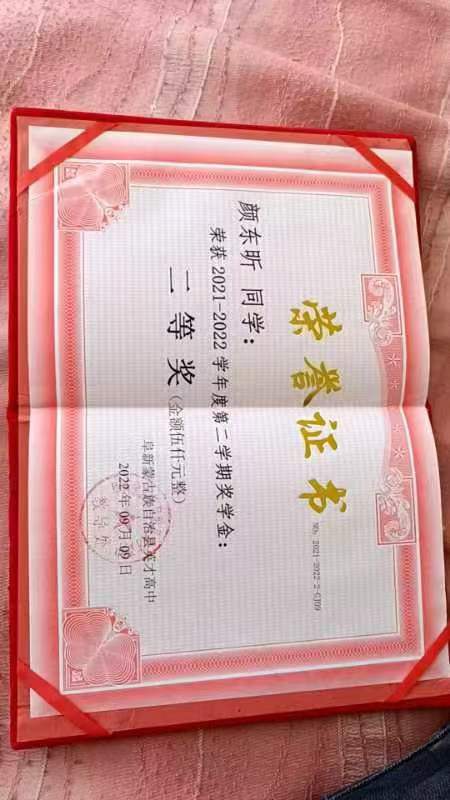 荣誉证书
No. 2021-2022-2-GJ09
颜东昕 同学：
荣获 2021-2022 学年度第二学期奖学金：
二等奖（金额伍仟元整）
阜新蒙古族自治县英才高中
2022 年 09 月 09 日
教导处